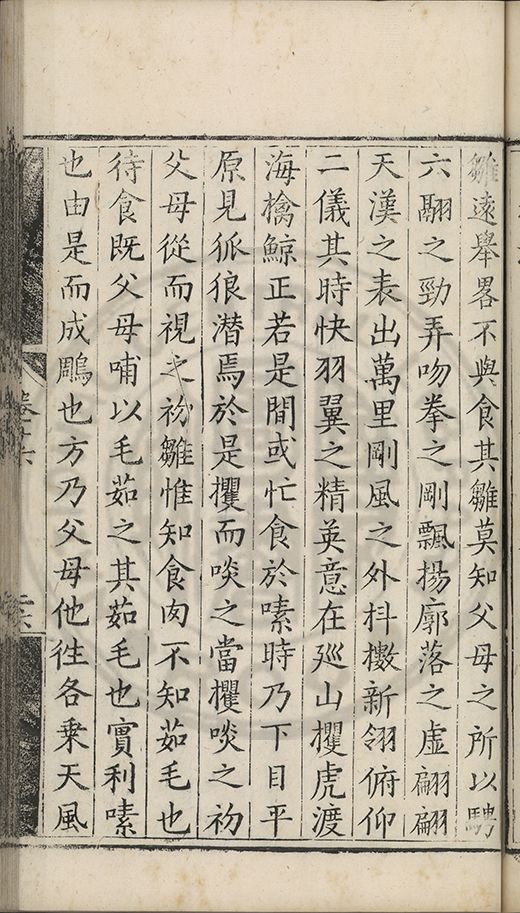 雛遠舉畧不與食其雛莫知父母之所以騁
六翮之勁弄吻拳之剛飄揚廓落之虛翩翩
天漢之表出萬里剛風之外抖擻新翎俯仰
二儀其時快羽翼之精英意在廵山攫虎渡
海擒鯨正若是間或忙食於嗉時乃下目平
原見狐狼潛焉於是攫而啖之當攫啖之初
父母從而視之初雛惟知食肉不知茹毛也
待食既父母哺以毛茹之其茹毛也實利嗉
也由是而成鵰也方乃父母他徃各乗天風
卷十六
二六